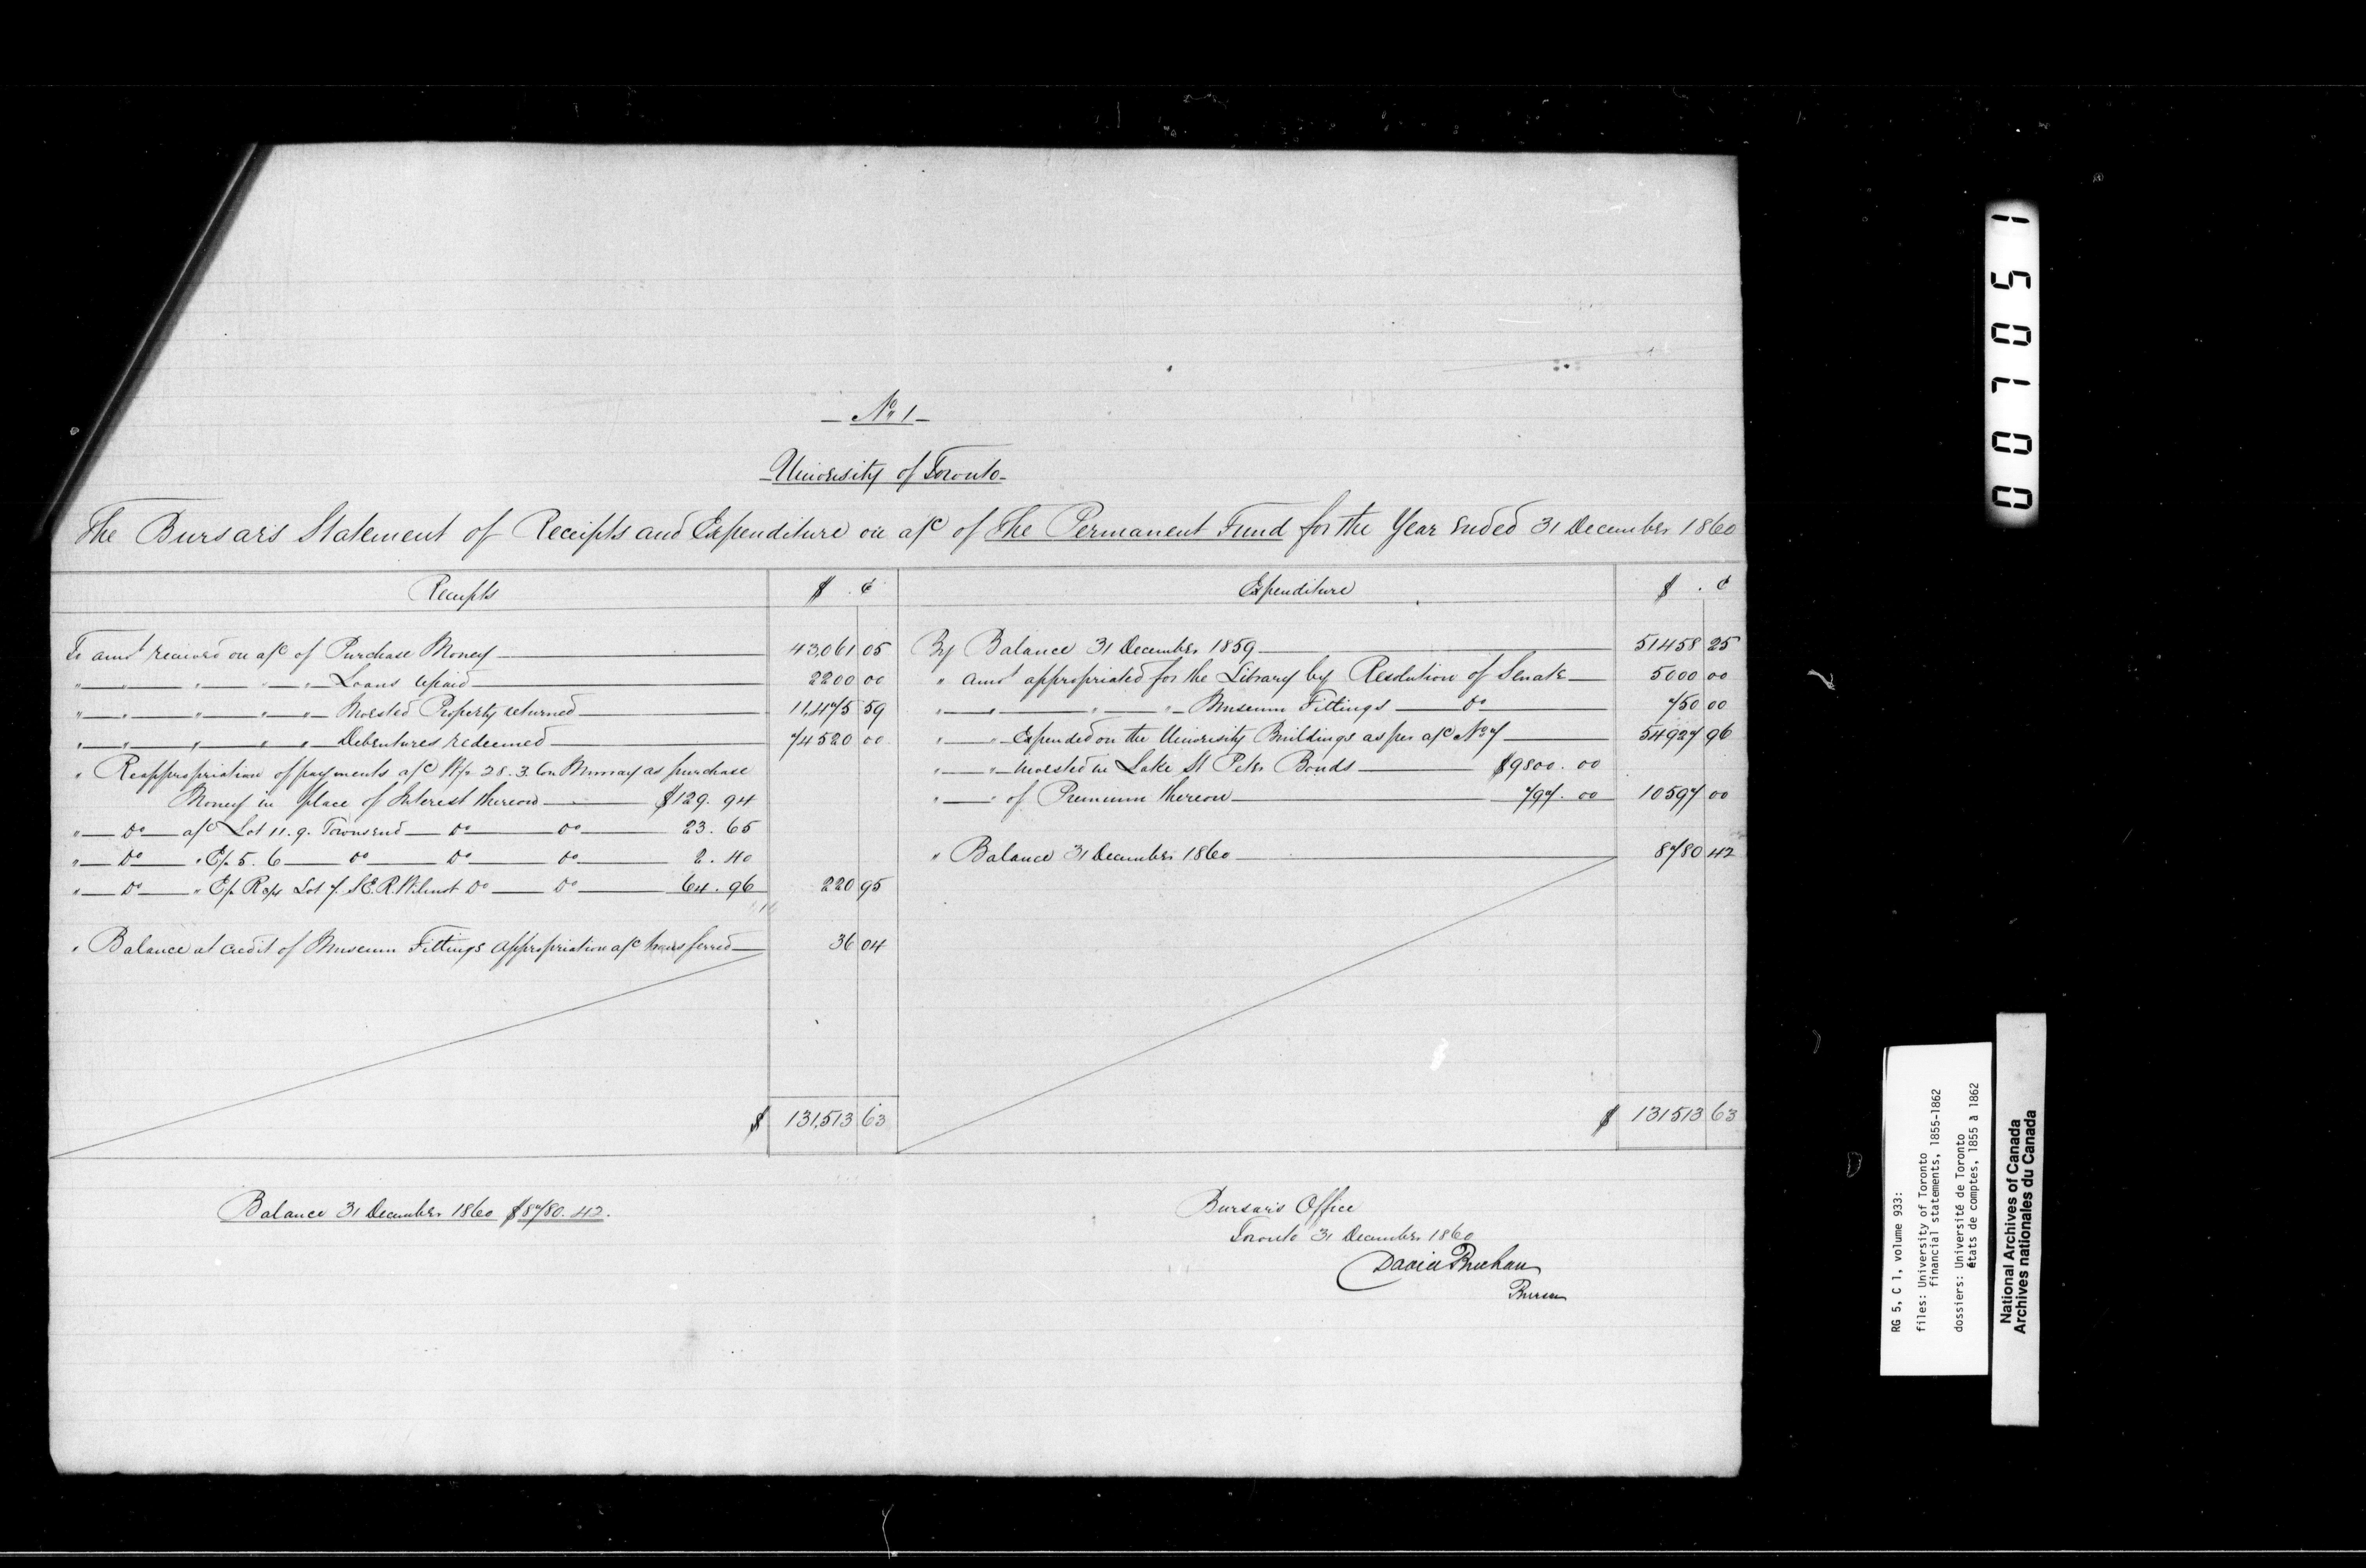 — No 1 —
University of Toronto
The Bursar's Statement of Receipts and Expenditure on a/c of The Permanent Fund for the Year ended 31 December 1860
Receipts $ ¢ Expenditure $ ¢
To amt received on a/c of Purchase Money 43,061 05
" " " " " Loans repaid 2200 00
" " " " " Invested Property returned 11,475 59
" " " " " Debentures redeemed 74520 00
" Reappropriation of payments a/c 28. 3. Con Murray as purchase
Money in place of Interest thereon $129. 94
" Do a/c Lot 11. 9. Townsend Do Do 23. 65
" Do " E/2 5. 6 Do Do Do 2. 40
" Do " E/2 Lot 7. S.E.R. Wilmot Do Do 64. 96 220 95
" Balance at credit of Museum Fittings appropriation a/c transferred 36 04
$ 131,513 63
By Balance 31 December 1859 51458 25
" amt appropriated for the Library by Resolution of Senate 5000 00
" " " " Museum Fittings Do 750 00
" " Expended on the University Buildings as per a/c No 7 54927 96
" " Invested in Lake St Peter Bonds $9800. 00
" " of Premium thereon 797. 00 10597 00
" Balance 31 December 1860 8780 42
$ 131513 63
Balance 31 December 1860 $8780. 42.
Bursar's Office
Toronto 31 December 1860
David Buchan
Bursar
007051
RG 5, C 1, volume 933:
files: University of Toronto
financial statements, 1855-1862
dossiers: Université de Toronto
états de comptes, 1855 à 1862
National Archives of Canada
Archives nationales du Canada